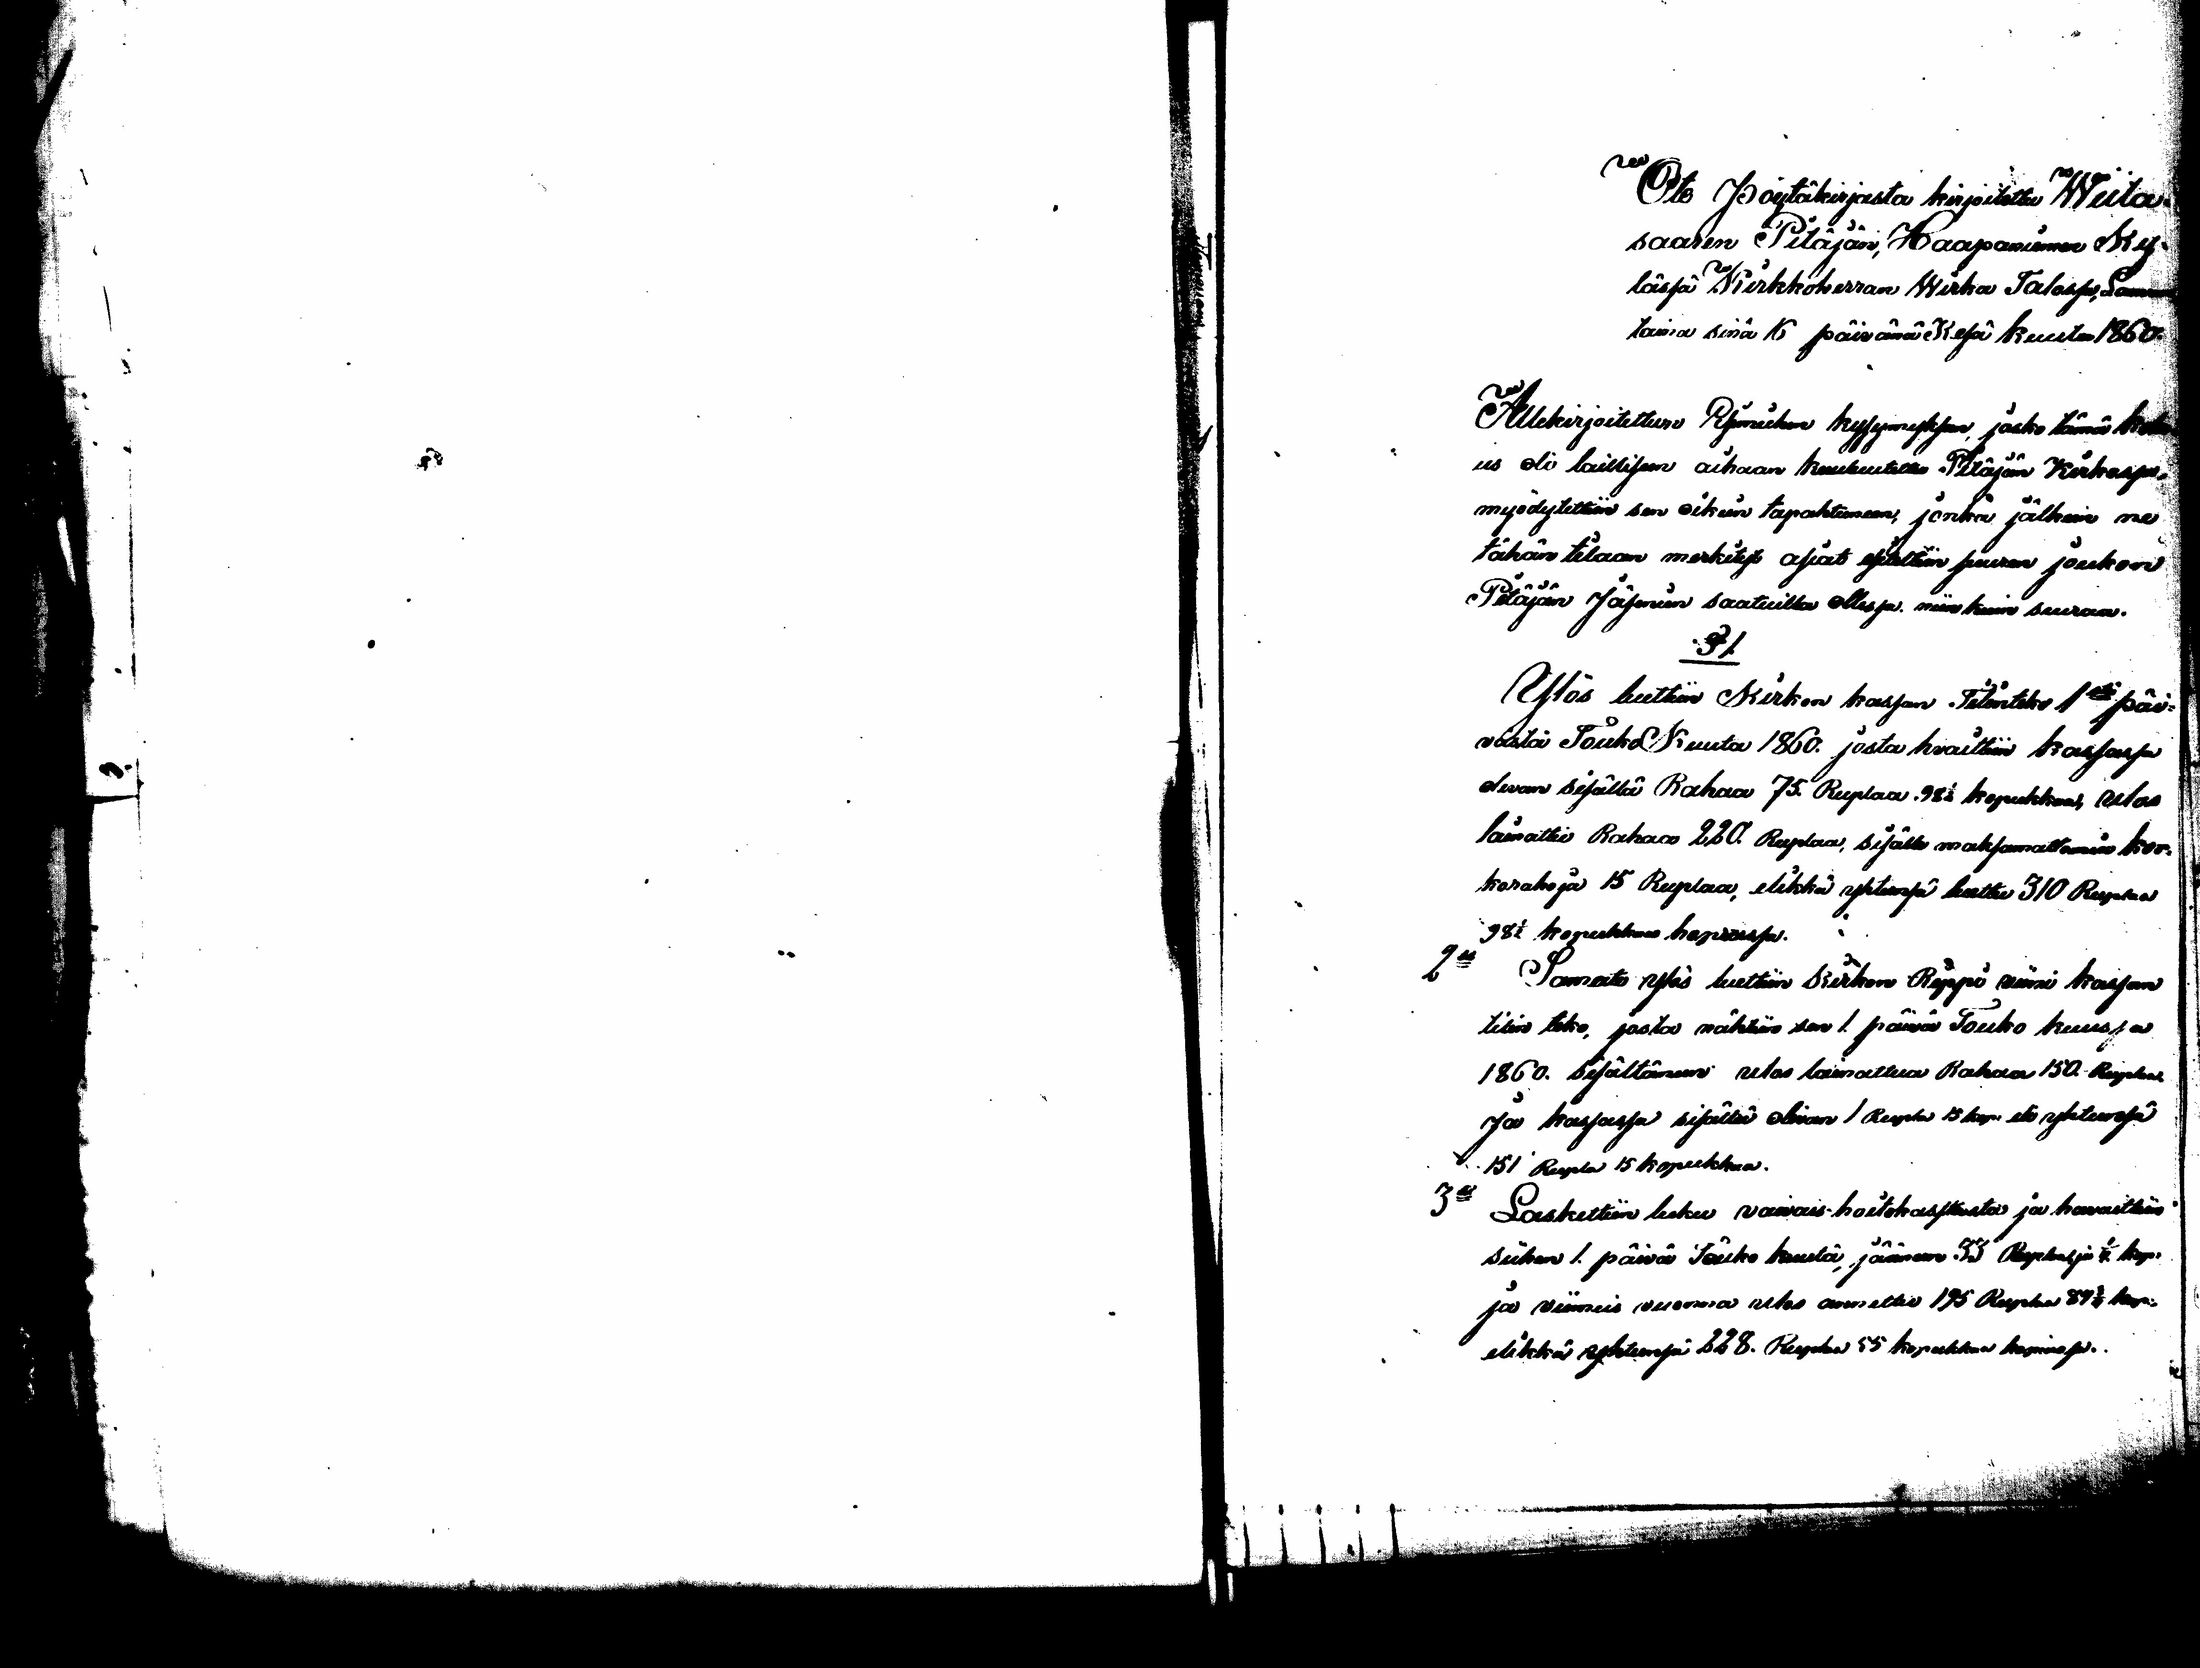 Ote Pöytäkirjasta kirjoitettu Wiita-
saaren Pitäjän, Haapaniemen Ky-
läsjä Kirkkoherran Wirka Talosja, Lauan-
taina sinä 16 päivänä Kesä kuuta 1860.
Allekirjoitettuen kysymyksen, josko tämä koko
us oli laillisen aikaan kuulutettu Pitäjän Kirkosja,
myödytettiin sen oikein tapahtuneen, jonka jälkein ne
tähän tilaan merkityt asjat esitettiin suuren joukon
Pitäjän Jäsenien saatuilla ollesja. niin kuin seuraa.
§ 1.
Ylös luettiin Kirkon kasjan Tilinteko 1stä päi-
västä Touko Kuuta 1860. josta hvaittiin kasjasja
olevan sisällä Rahaa 75. Ruplaa. 98½ kopekkaa, ulos
lainattu Rahaa 220. Ruplaa, sisälle maksamattomia kor-
korahoja 15 Ruplaa, elikkä yhteensä luettu 310 Ruplaa
98½ kopekkaa hopeassa.
2si Samate ylös luettiin Kirkon Rippi viini kasjan
tilin teko, josta nähtiin sen 1. päivä Touko kuusja
1860. sisältäneen ulos lainattua Rahaa 150. Ruplaa
Ja kasjasja sisällä olivan 1 Rupla 15 kop. eli yhteensä
151 Rupla 15 kopekkaa.
3si Laskettiin luku vaivais-hoitokasjasta ja havaittiin
siihen 1. päivä Touko kuuta, jääneen 33 Ruplaa ja kop.
ja viimeis vuonna ulos annettu 195 Ruplaa 89 kop.
elikkä yhteensä 228. Ruplaa 55 kopekkaa hopiasja.